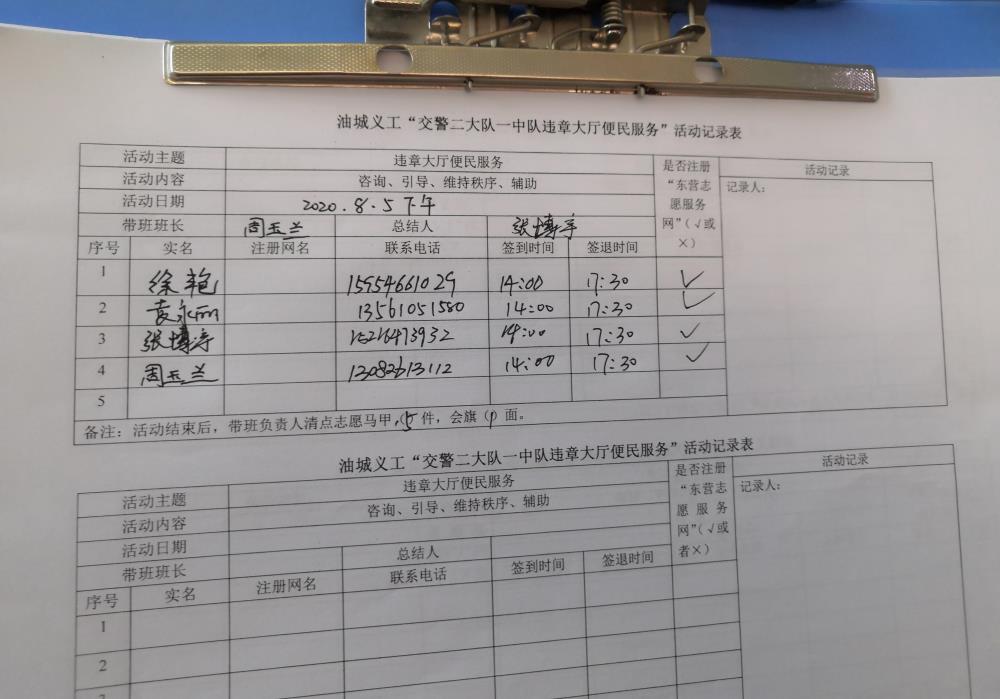 油城义工“交警二大队一中队违章大厅便民服务”活动记录表
活动主题 违章大厅便民服务 是否注册“东营志愿服务网”(√或×) 活动记录
活动内容 咨询、引导、维持秩序、辅助 记录人：
活动日期 2020.8.5下午
带班班长 周玉兰 总结人 张博宇
序号 实名 注册网名 联系电话 签到时间 签退时间
1 徐艳 15954661029 14:00 17:30 √
2 袁永丽 13561051580 14:00 17:30 √
3 张博宇 15216473932 14:00 17:30 √
4 周玉兰 13082613112 14:00 17:30 √
5
备注：活动结束后，带班负责人清点志愿马甲(5件，会旗(1面。
油城义工“交警二大队一中队违章大厅便民服务”活动记录表
活动主题 违章大厅便民服务 是否注册“东营志愿服务网”(√或者×) 活动记录
活动内容 咨询、引导、维持秩序、辅助 记录人：
活动日期
带班班长 总结人
序号 实名 注册网名 联系电话 签到时间 签退时间
1
2